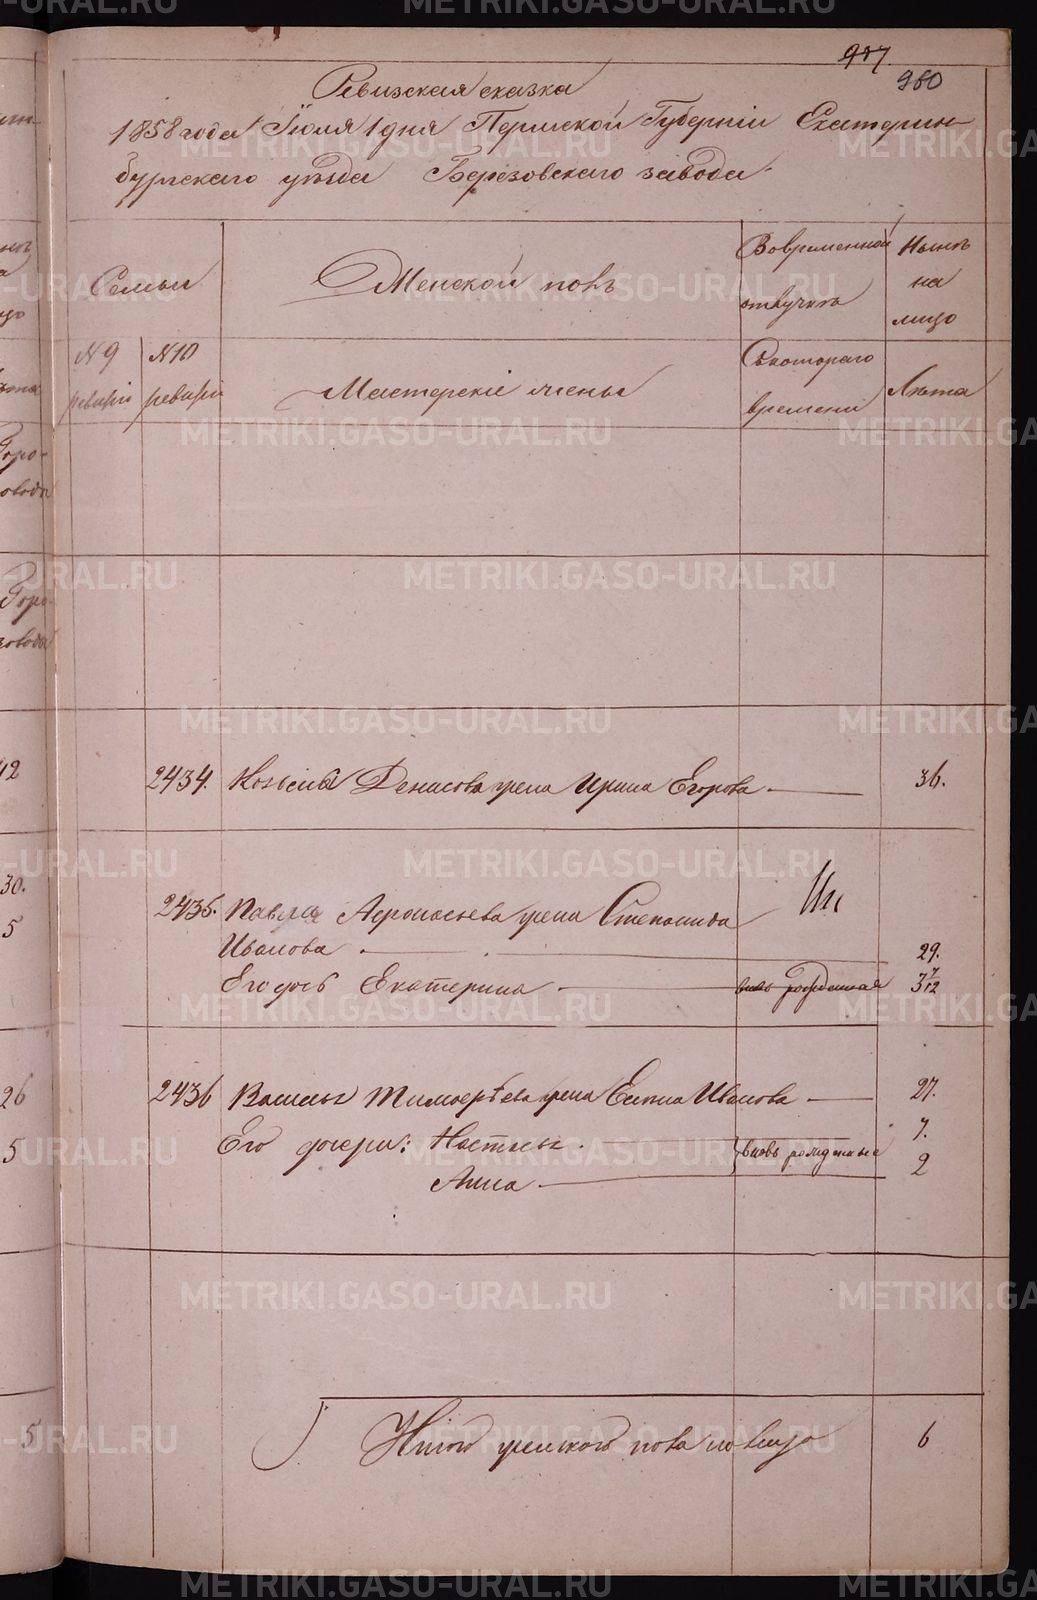 977.
960
Ревизская сказка
1858 года Іюля 1 дня Пермской Губерніи Екатерин-
бургскаго уѣзда Березовскаго завода
Семьи
Женской полъ
Во временной отлучкѣ
Нынѣ на лицо
N 9 ревизіи
N 10 ревизіи
Мастерскіе жены
Съ котораго времени
Лѣта
2434. Козьмы Денисова жена Ирина Егорова 36.
2435. Павла Афонасьева жена Степанида
Иванова 29.
Его дочь Екатерина вновь рожденная 3 7/12
2436 Василья Тимофеѣва жена Елена Иванова 27.
Его дочери: Настасья 7.
вновь рожденные
Анна 2
Итого женского пола на лицо 6
12
30.
5
26
5
5
METRIKI.GASO-URAL.RU